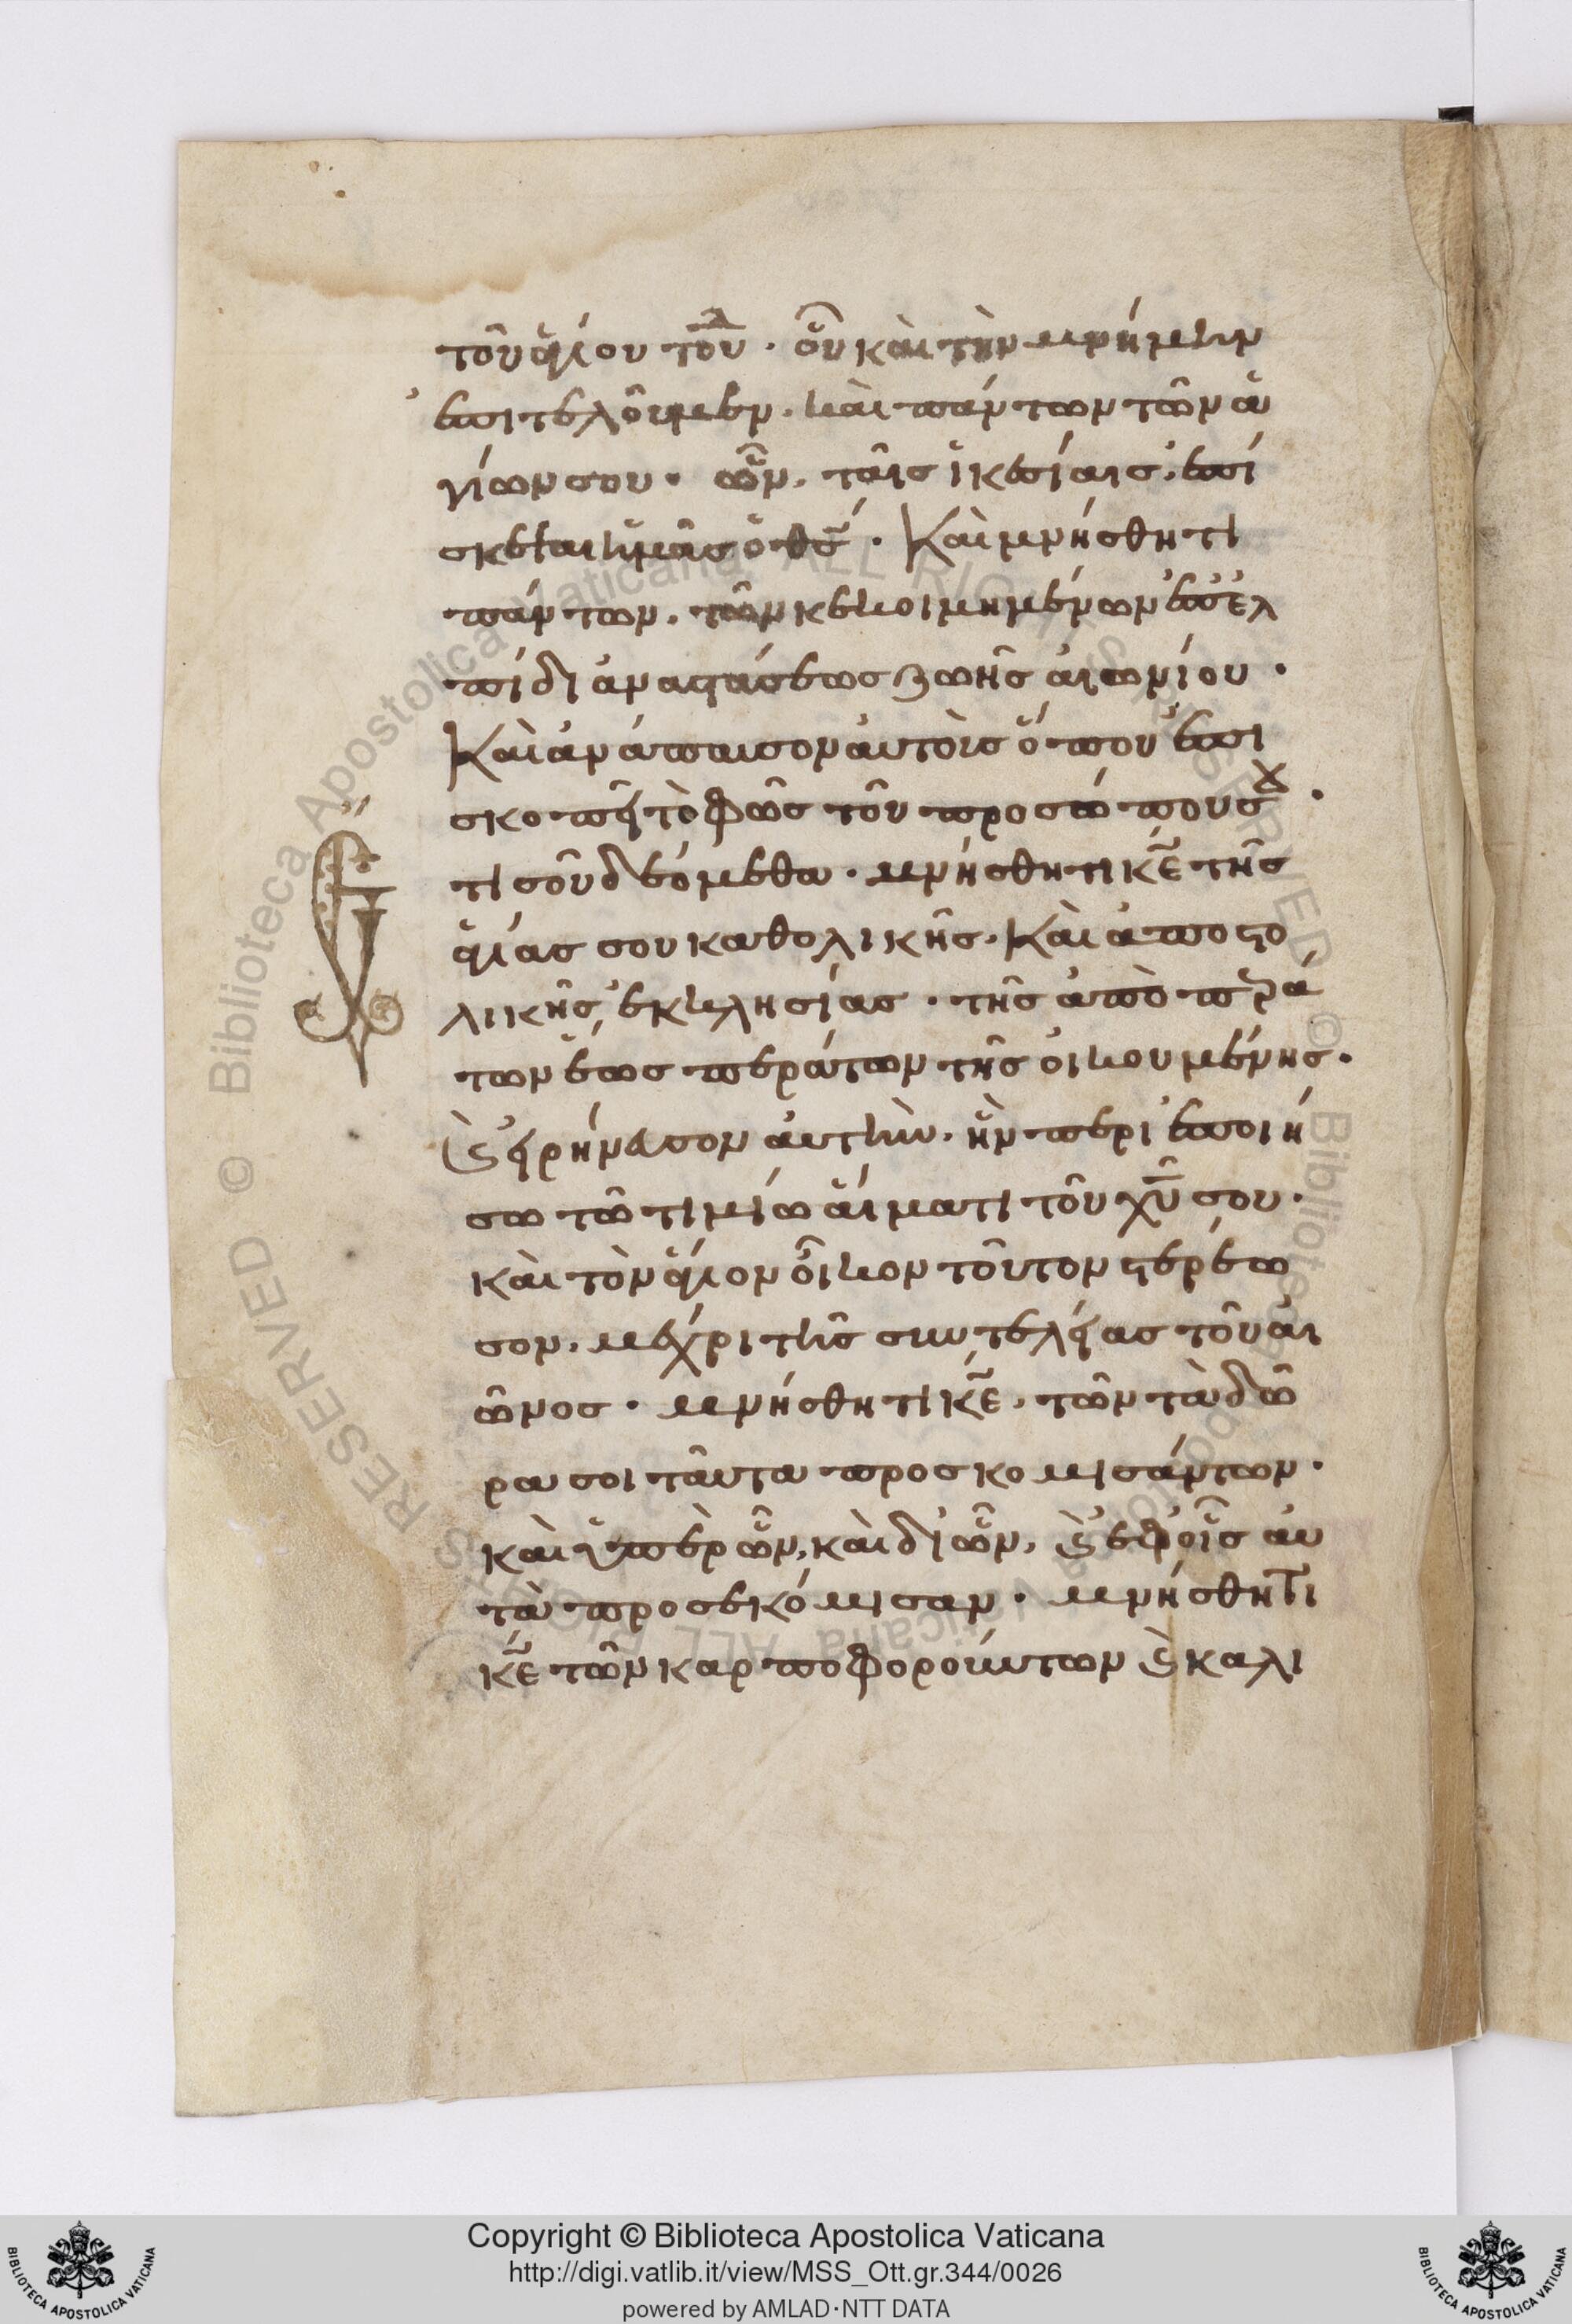 τοῦ ἁγίου τοῦδ · οὗ καὶ τὴν μνήμην
ἐπιτελοῦμεν · καὶ πάντων τῶν ἁ
γίων σου · ὧν, ταῖς ἱκεσίαις, ἐπί
σκεψαι ἡμᾶς ὁ θς · Καὶ μνήσθητι
πάντων, τῶν κεκοιμημένων ἐπ' ἐλ
πίδι ἀναστάσεως ζωῆς αἰωνίου ·
Καὶ ἀνάπαυσον αὐτοὶς ὅπου ἐπι
σκοπεῖ τὸ φῶς τοῦ προσώπου σου ·
Ἔ
τι σοῦ δεόμεθα · μνήσθητι κε τῆς
ἁγίας σου καθολικῆς · Καὶ ἀποστο
λικῆς, ἐκκλησίας · τῆς ἀπὸ περά
των ἕως περάτων τῆς οἰκουμένης ·
Καὶ εἰρήνευσον αὐτὴν · ἣν περιεποιή
σω τῶ τιμίω αἵματι τοῦ χυ σου ·
καὶ τὸν ἅγιον οἶκον τοῦτον στερέω
σον, μέχρι τῆς συντελείας τοῦ αἰ
ῶνος · μνήσθητι κε, τῶν τὰ δῶ
ρα σοι ταῦτα προσκομισάντων ·
καὶ ὑπὲρ ὧν, καὶ δι' ὧν, καὶ ἐφ' οἷς αὐ
τὰ προσεκόμισαν · μνήσθητι
κε τῶν καρποφορούντων καὶ καλι
Copyright © Biblioteca Apostolica Vaticana
http://digi.vatlib.it/view/MSS_Ott.gr.344/0026
powered by AMLAD·NTT DATA
BIBLIOTECA APOSTOLICA VATICANA
BIBLIOTECA APOSTOLICA VATICANA